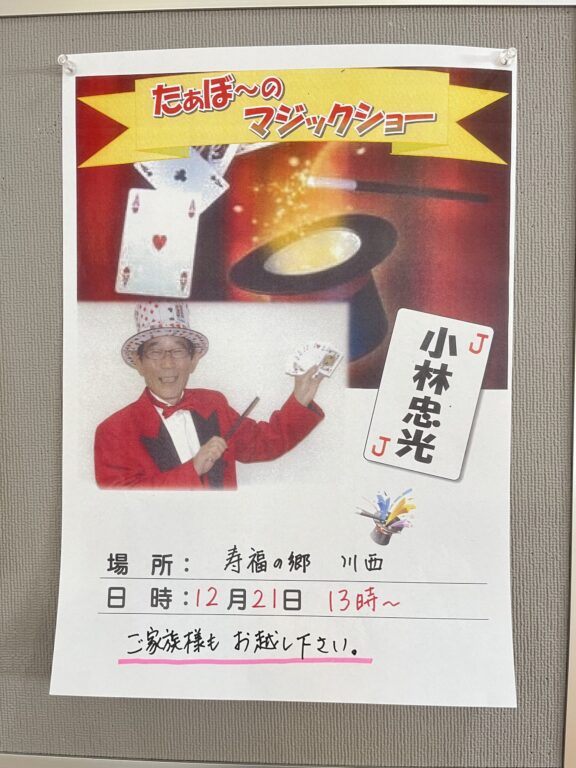 たぁぼ～の
マジックショー
A
A
J
小林忠光
J
場 所： 寿福の郷 川西
日 時：12月21日 13時～
ご家族様も お越し下さい。